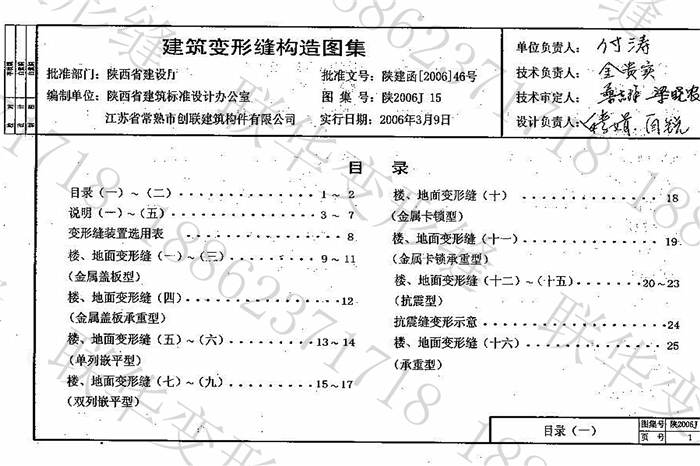 建筑变形缝构造图集
批准部门：陕西省建设厅
批准文号：陕建函[2006]46号
编制单位：陕西省建筑标准设计办公室
图 集 号：陕2006J 15
江苏省常熟市创联建筑构件有限公司
实行日期：2006年3月9日
单位负责人：付涛
技术负责人：
技术审定人：
设计负责人：
目 录
目录（一）～（二） 1～2
说明（一）～（五） 3～7
变形缝装置选用表 8
楼、地面变形缝（一）～（三） 9～11
（金属盖板型）
楼、地面变形缝（四） 12
（金属盖板承重型）
楼、地面变形缝（五）～（六） 13～14
（单列嵌平型）
楼、地面变形缝（七）～（九） 15～17
（双列嵌平型）
楼、地面变形缝（十） 18
（金属卡锁型）
楼、地面变形缝（十一） 19
（金属卡锁承重型）
楼、地面变形缝（十二）～（十五） 20～23
（抗震型）
抗震缝变形示意 24
楼、地面变形缝（十六） 25
（承重型）
目录（一）
图集号 陕2006J
页 号 1
联华变形缝 18862371718